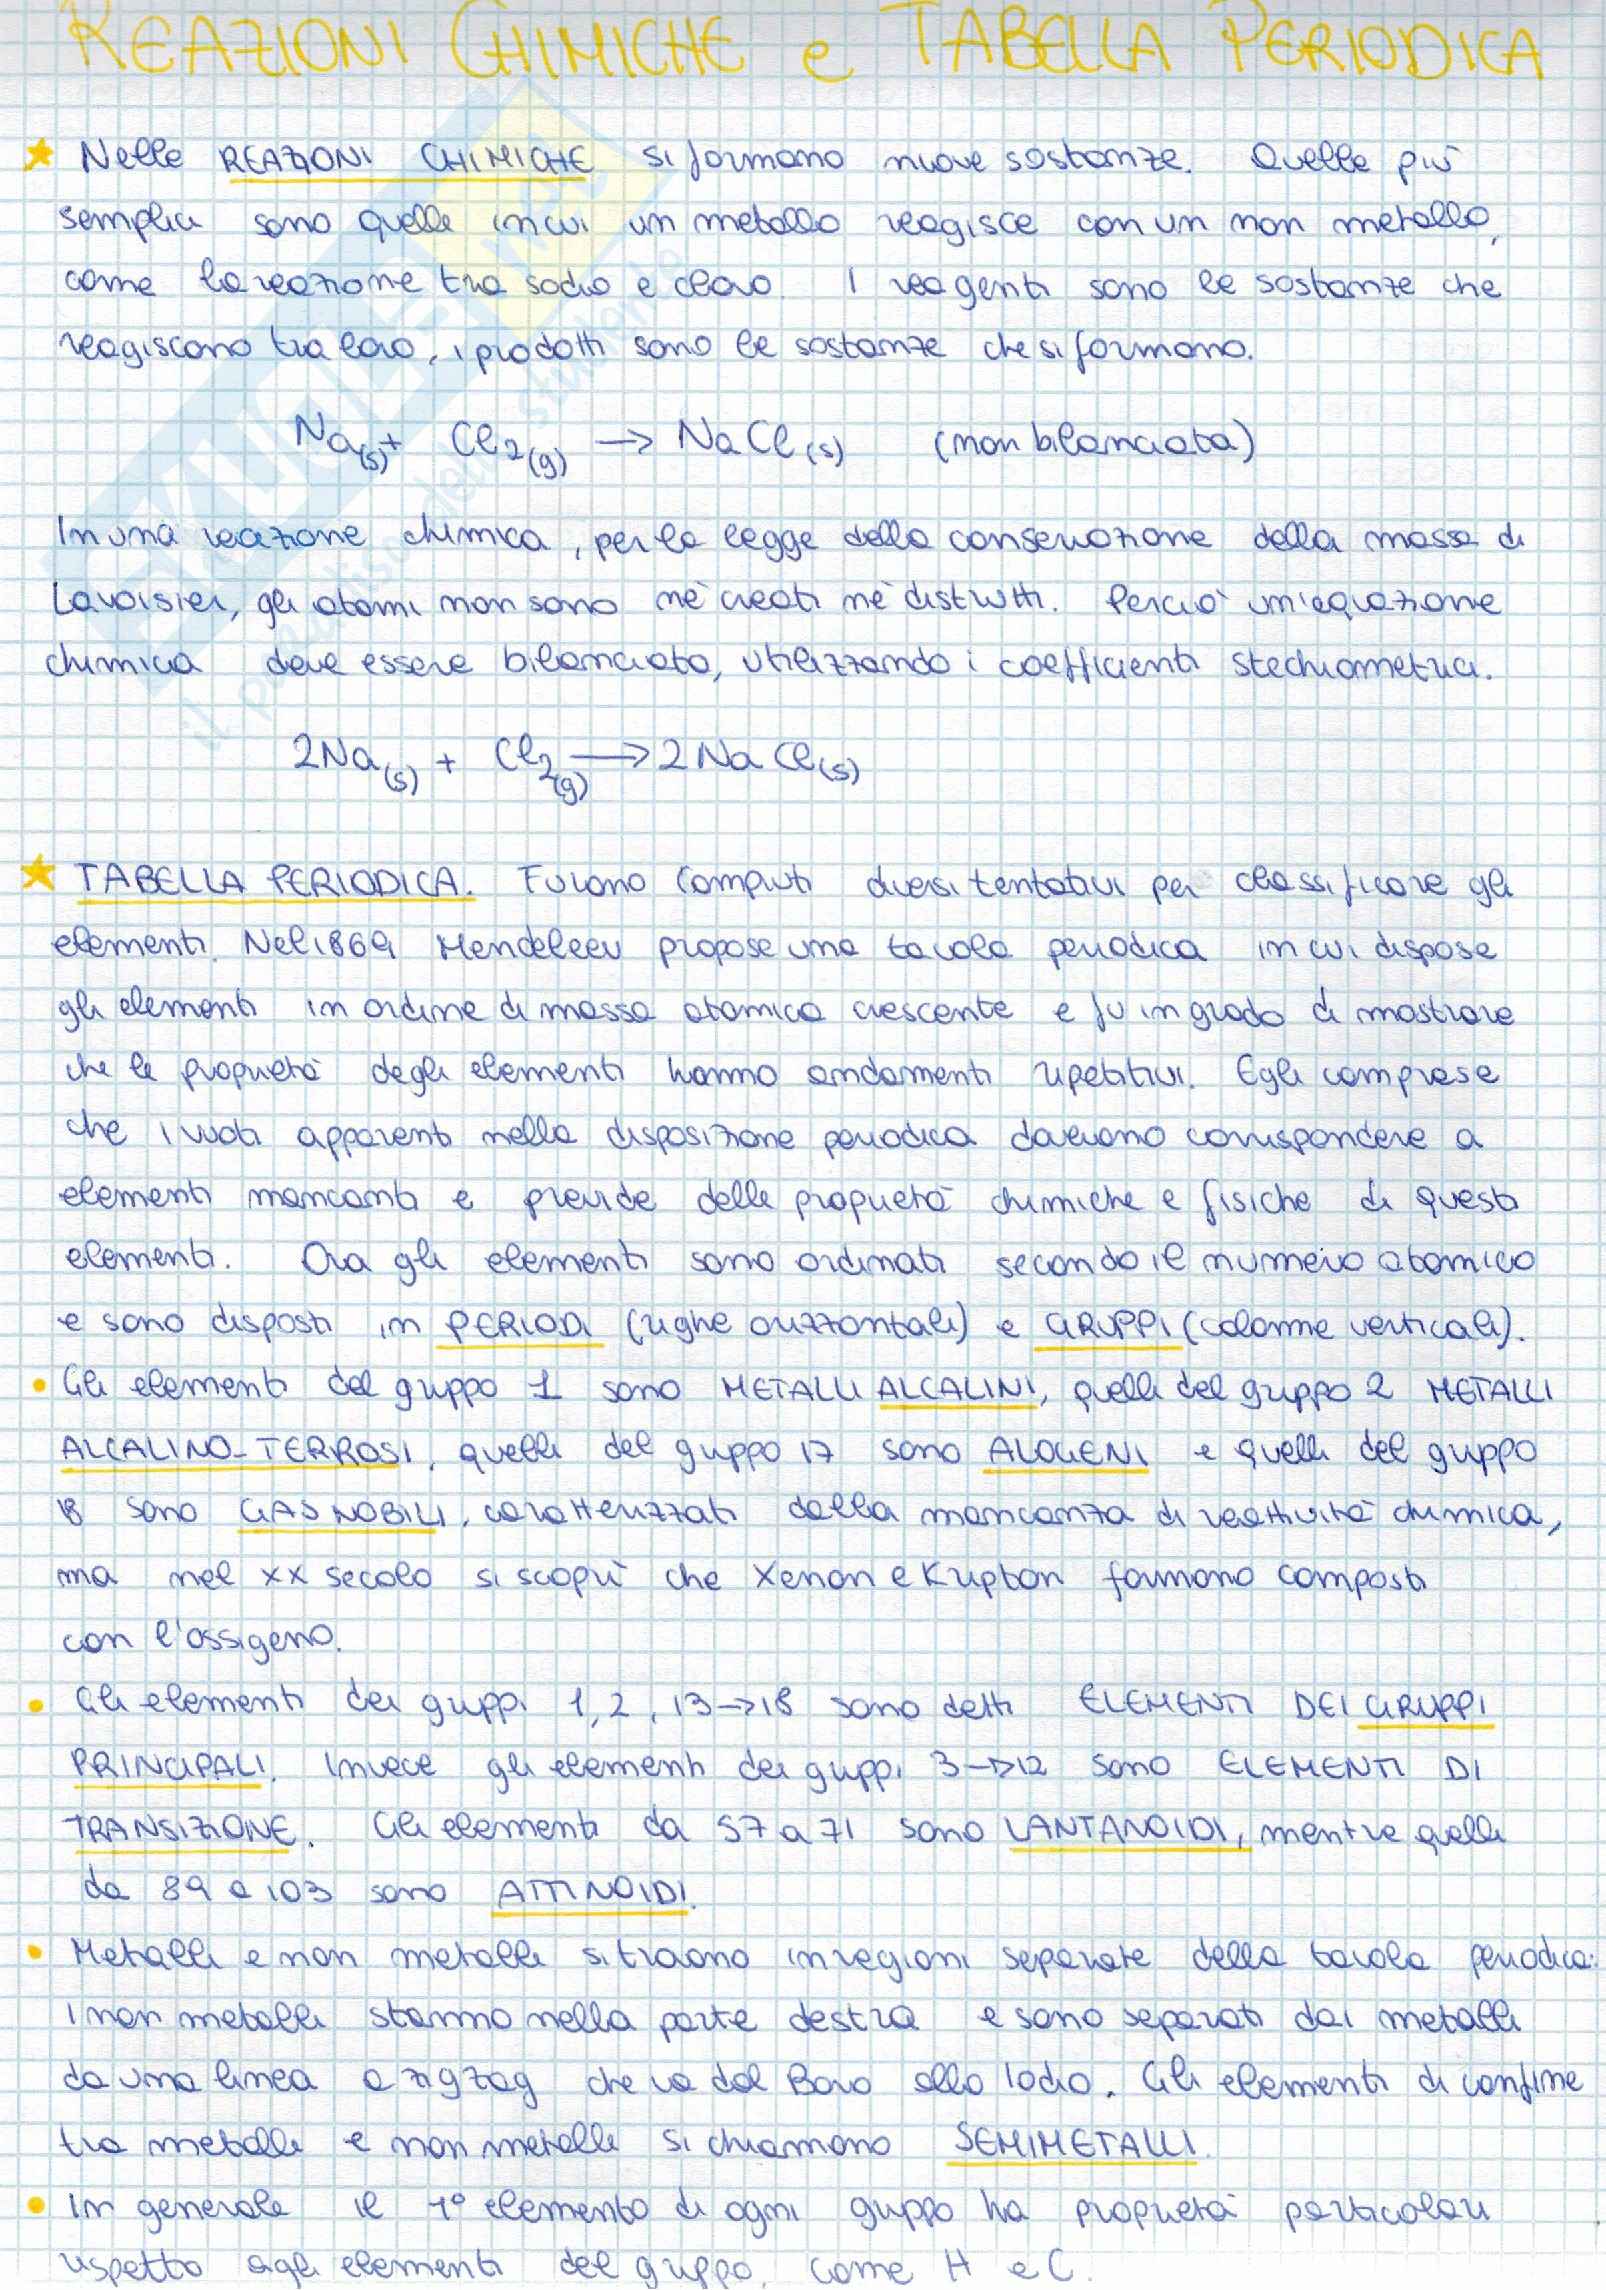 REAZIONI CHIMICHE e TABELLA PERIODICA
Nelle REAZIONI CHIMICHE si formano nuove sostanze. Quelle più
semplici sono quelle in cui un metallo reagisce con un non metallo,
come la reazione tra sodio e cloro. I reagenti sono le sostanze che
reagiscono tra loro, i prodotti sono le sostanze che si formano.
Na(s) + Cl2(g) → NaCl(s) (non bilanciata)
In una reazione chimica, per la legge della conservazione della massa di
Lavoisier, gli atomi non sono nè creati nè distrutti. Perciò un'equazione
chimica deve essere bilanciata, utilizzando i coefficienti stechiometrici.
2Na(s) + Cl2(g) → 2NaCl(s)
TABELLA PERIODICA. Furono compiuti diversi tentativi per classificare gli
elementi. Nel 1869 Mendeleev propose una tavola periodica in cui dispose
gli elementi in ordine di massa atomica crescente e fu in grado di mostrare
che le proprietà degli elementi hanno andamenti ripetitivi. Egli comprese
che i vuoti apparenti nella disposizione periodica dovevano corrispondere a
elementi mancanti e previde delle proprietà chimiche e fisiche di questi
elementi. Ora gli elementi sono ordinati secondo il numero atomico
e sono disposti in PERIODI (righe orizzontali) e GRUPPI (colonne verticali).
• Gli elementi del gruppo 1 sono METALLI ALCALINI, quelli del gruppo 2 METALLI
ALCALINO-TERROSI, quelli del gruppo 17 sono ALOGENI e quelli del gruppo
18 sono GAS NOBILI, caratterizzati dalla mancanza di reattività chimica,
ma nel XX secolo si scoprì che Xenon e Kripton formano composti
con l'ossigeno.
• Gli elementi dei gruppi 1, 2, 13→18 sono detti ELEMENTI DEI GRUPPI
PRINCIPALI. Invece gli elementi dei gruppi 3→12 sono ELEMENTI DI
TRANSIZIONE. Gli elementi da 57 a 71 sono LANTANOIDI, mentre quelli
da 89 a 103 sono ATTINOIDI.
• Metalli e non metalli si trovano in regioni separate della tavola periodica:
i non metalli stanno nella parte destra e sono separati dai metalli
da una linea a zig zag che va dal Boro allo Iodio. Gli elementi di confine
tra metalli e non metalli si chiamano SEMIMETALLI.
• In generale il 1° elemento di ogni gruppo ha proprietà particolari
rispetto agli elementi del gruppo, come H e C.
il paradiso dello studente